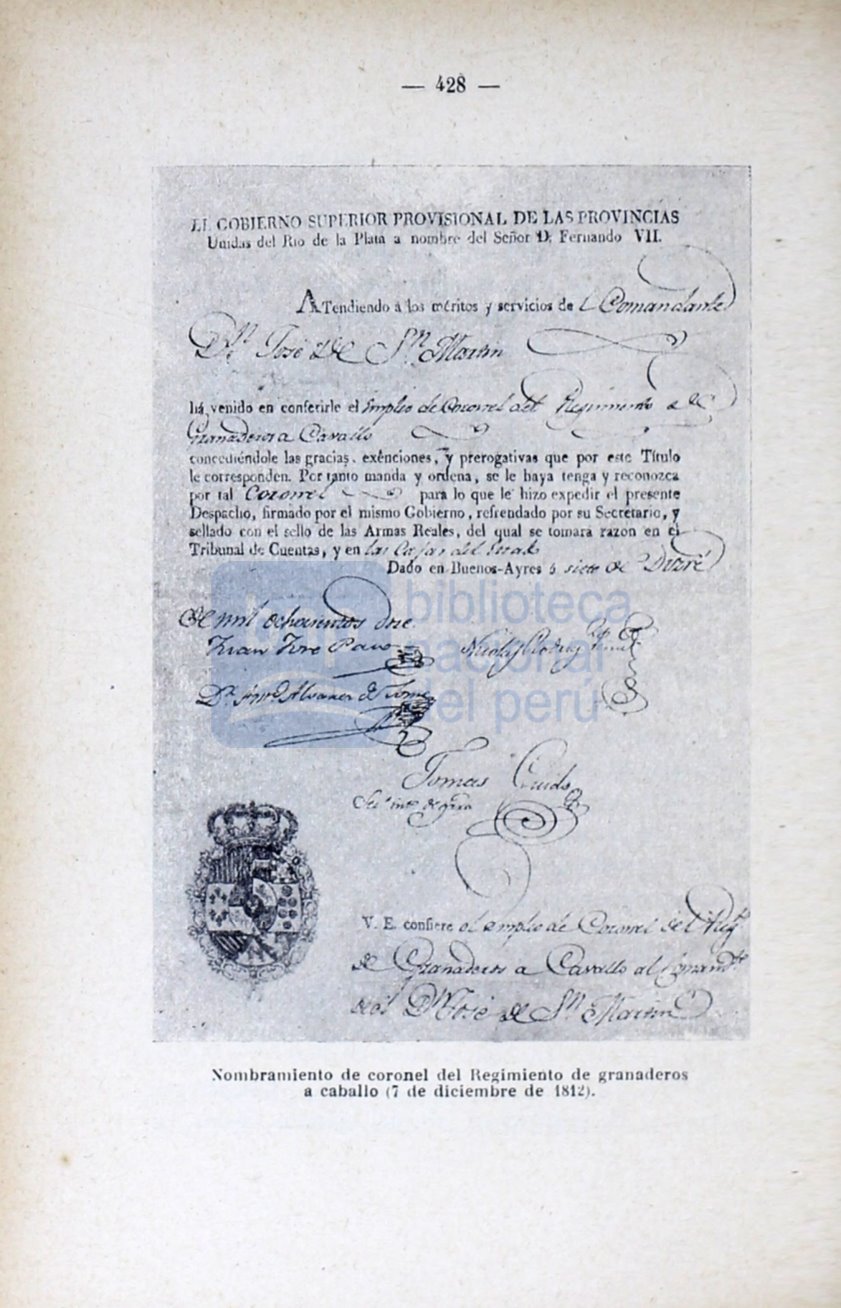 — 428 —
EL GOBIERNO SUPERIOR PROVISIONAL DE LAS PROVINCIAS
Unidas del Rio de la Plata a nombre del Señor D. Fernando VII.
ATendiendo á los méritos y servicios de l Comandante
Dn. José de Sn. Martin
há venido en conferirle el Empleo de Coronel del Regimiento de
Granaderos a Cavallo
concediéndole las gracias, exênciones, y prerogativas que por este Título
le corresponden. Por tanto manda y ordena, se le haya tenga y reconozca
por tal Coronel para lo que le hizo expedir el presente
Despacho, firmado por el mismo Gobierno, refrendado por su Secretario, y
sellado con el sello de las Armas Reales, del qual se tomará razon en el
Tribunal de Cuentas, y en las Cajas del Estado
Dado en Buenos-Ayres á siete de Dizre
de mil ochocientos doce
Juan José Paso
Nicolas Rodrig Peña
Dr. Anto. Alvarez de Jonte
Tomas Guido
biblioteca
nacional
del perú
V. E. confiere el empleo de Coronel del Regto
de Granaderos a Cavallo al Comandte
Dn José de Sn Martin
Nombramiento de coronel del Regimiento de granaderos
a caballo (7 de diciembre de 1812).